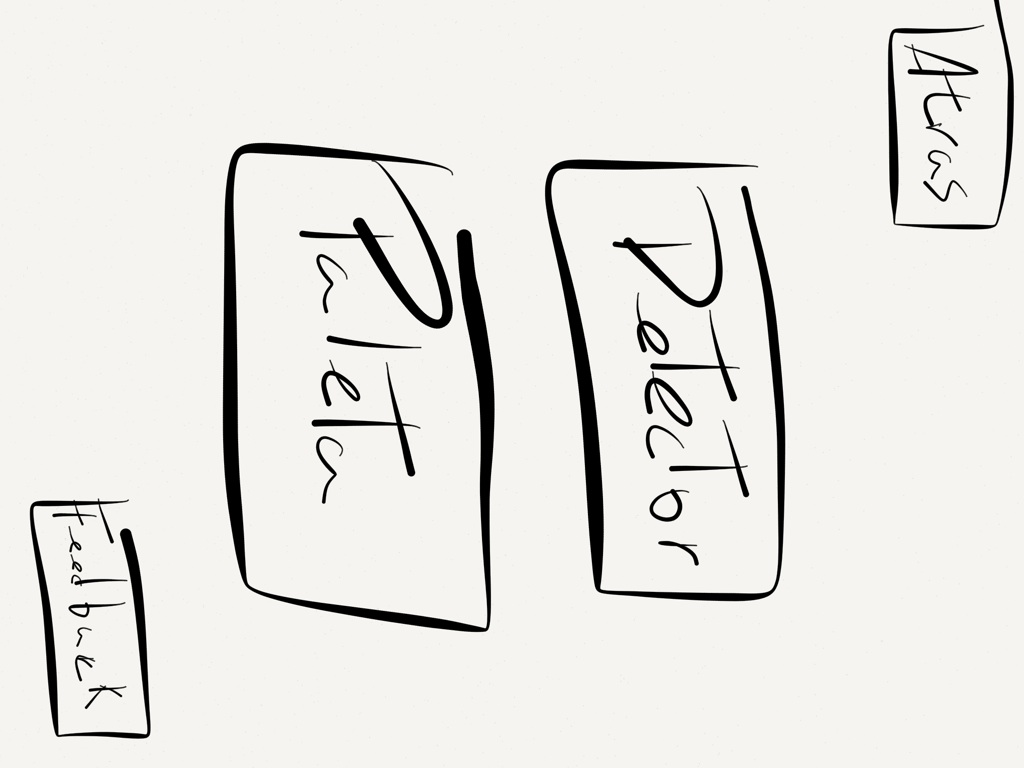 Atras
Detector
Paleta
Feedback